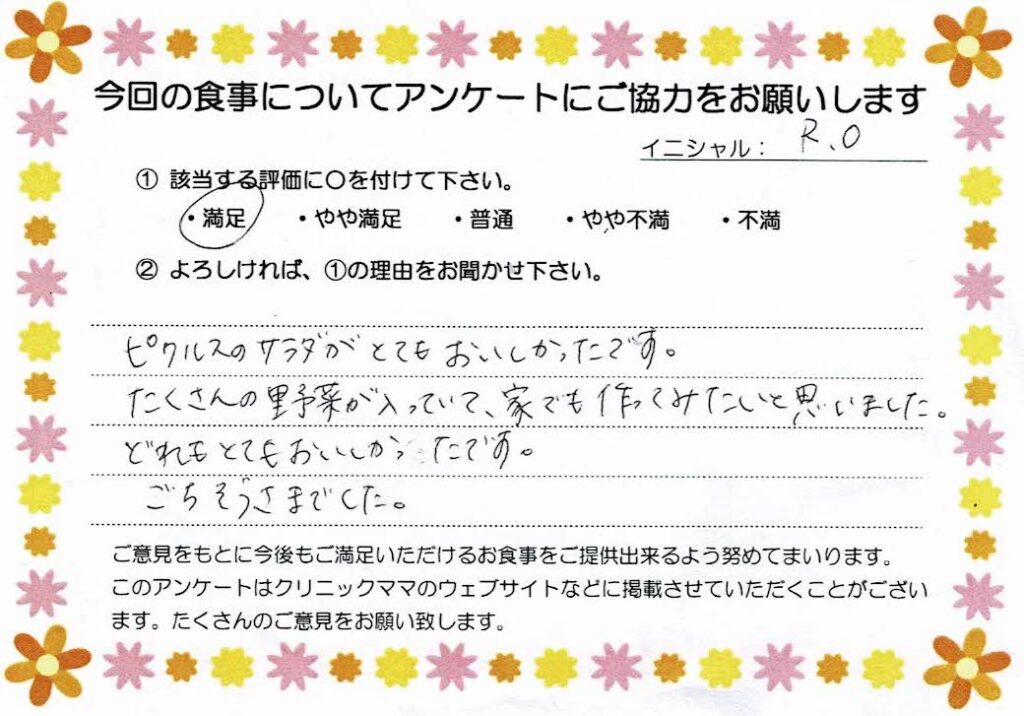 今回の食事についてアンケートにご協力をお願いします
イニシャル： R.O
① 該当する評価に〇を付けて下さい。
・満足 ・やや満足 ・普通 ・やや不満 ・不満
② よろしければ、①の理由をお聞かせ下さい。
ピクルスのサラダがとてもおいしかったです。
たくさんの野菜が入っていて、家でも作ってみたいと思いました。
どれもとてもおいしかったです。
ごちそうさまでした。
ご意見をもとに今後もご満足いただけるお食事をご提供出来るよう努めてまいります。
このアンケートはクリニックママのウェブサイトなどに掲載させていただくことがござい
ます。たくさんのご意見をお願い致します。